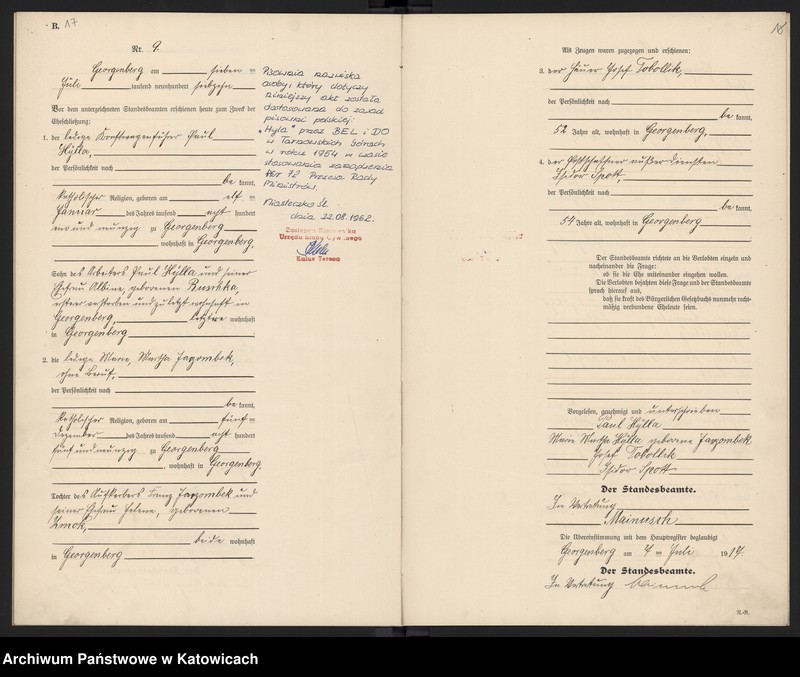 B. 17
Nr. 9.
Georgenberg am sieben
Juli tausend neunhundert siebzehn
Vor dem unterzeichneten Standesbeamten erschienen heute zum Zweck der
Eheschließung:
1. der ledige Kraftwagenführer Paul
Hÿlla,
der Persönlichkeit nach
be kannt,
katholischer Religion, geboren am elf
Januar des Jahres tausend acht hundert
einundneunzig zu Georgenberg
, wohnhaft in Georgenberg,
Sohn des Arbeiters Paul Hÿlla und seiner
Ehefrau Albine, geborenen
ersterer verstorben und zuletzt wohnhaft in
Georgenberg, letztere wohnhaft
in Georgenberg
2. die ledige Marie, Martha Jagombek,
ohne Beruf,
der Persönlichkeit nach
be kannt,
katholischer Religion, geboren am fünf
Dezember des Jahres tausend acht hundert
fünfundneunzig zu Georgenberg
, wohnhaft in Georgenberg.
Tochter des Franz Jagombek und
seiner Ehefrau Helene, geborenen
Zmok,
beide wohnhaft
in Georgenberg
Pisownia nazwiska
osoby, której dotyczy
niniejszy akt została
dostosowana do zasad
pisowni polskiej:
"Hyla" przez
w Tarnowskich Górach
w roku 1954 w czasie
stosowania zarządzenia
Nr 72 Prezesa Rady
Ministrów.
Miasteczko Śl.
dnia 22.08.1962.
Zastępca Kierownika
Urzędu Stanu Cywilnego
Teresa
18
Als Zeugen waren zugezogen und erschienen:
3. der Häuer Josef Tobollik,
der Persönlichkeit nach
be kannt,
52 Jahre alt, wohnhaft in Georgenberg,
4. der Postschaffner außer Diensten
Isidor Spott,
der Persönlichkeit nach
be kannt,
54 Jahre alt, wohnhaft in Georgenberg
Der Standesbeamte richtete an die Verlobten einzeln und
nacheinander die Frage:
ob sie die Ehe miteinander eingehen wollen.
Die Verlobten bejahten diese Frage und der Standesbeamte
sprach hierauf aus,
daß sie kraft des Bürgerlichen Gesetzbuchs nunmehr recht-
mäßig verbundene Eheleute seien.
Vorgelesen, genehmigt und unterschrieben
Paul Hÿlla
Marie Martha Hÿlla geborene Jagombek
Josef Tobollik
Isidor Spott
Der Standesbeamte.
In Vertretung
Mainusch
Die Übereinstimmung mit dem Hauptregister beglaubigt
Georgenberg am 7 ten Juli 1917.
Der Standesbeamte.
In Vertretung Mainusch
R.-R.
Archiwum Państwowe w Katowicach